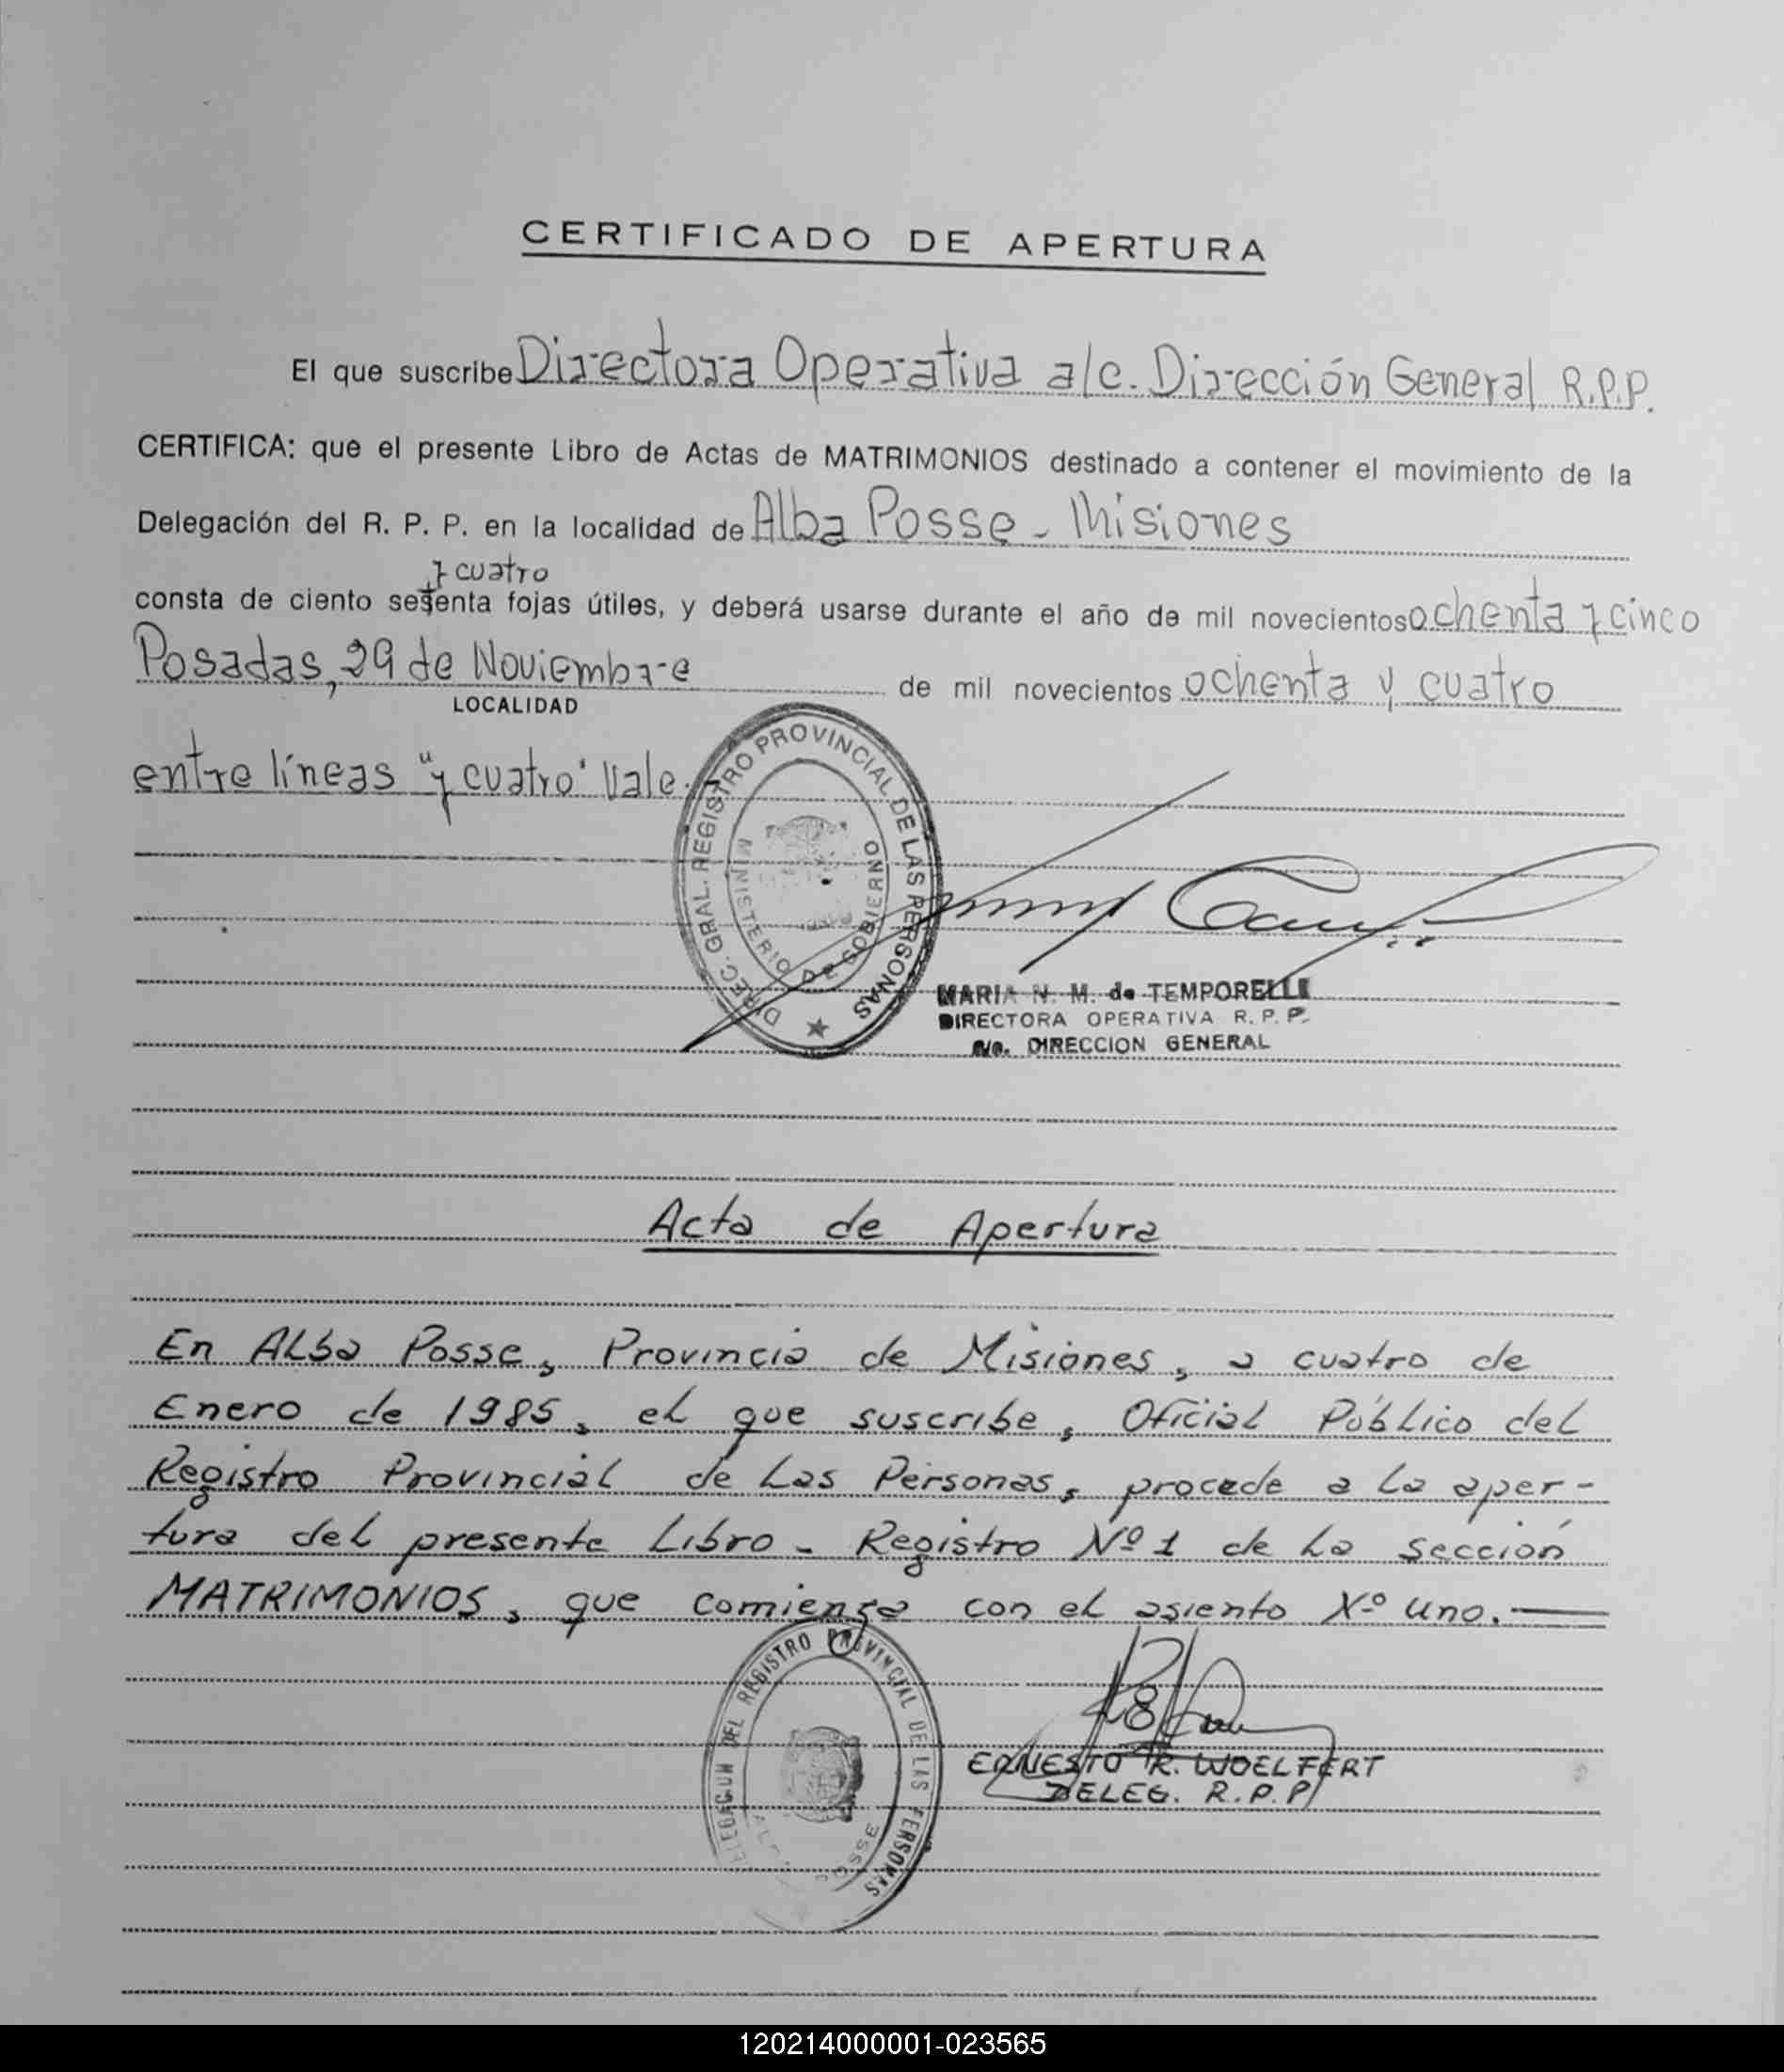 CERTIFICADO DE APERTURA
El que suscribe Directora Operativa a/c. Dirección General R.P.P.
CERTIFICA: que el presente Libro de Actas de MATRIMONIOS destinado a contener el movimiento de la
Delegación del R. P. P. en la localidad de Alba Posse - Misiones
y cuatro
consta de ciento setenta fojas útiles, y deberá usarse durante el año de mil novecientos ochenta y cinco
Posadas, 29 de Noviembre de mil novecientos ochenta y cuatro
LOCALIDAD
entre líneas "y cuatro" Vale.
DIREC. GRAL. REGISTRO PROVINCIAL DE LAS PERSONAS
MINISTERIO DE GOBIERNO
MARIA N. M. de TEMPORELLI
DIRECTORA OPERATIVA R. P. P.
a/c. DIRECCION GENERAL
Acta de Apertura
En Alba Posse, Provincia de Misiones, a cuatro de
Enero de 1985, el que suscribe, Oficial Público del
Registro Provincial de las Personas, procede a la aper-
tura del presente Libro - Registro Nº 1 de la sección
MATRIMONIOS, que comienza con el asiento Nº uno.
DELEGACION DEL REGISTRO PROVINCIAL DE LAS PERSONAS
POSSE
ERNESTO R. WOELFERT
DELEG. R.P.P.
120214000001-023565